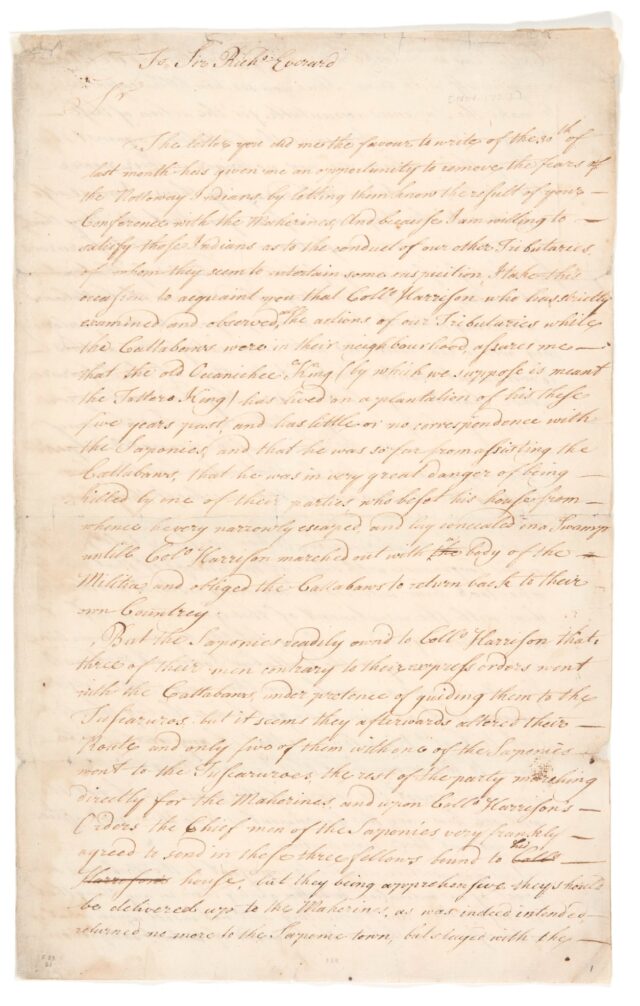 To Sir Richd. Everard
Sr
The letter you did me the favour to write of the 30th of
last month has given me an opportunity to remove the fears of
the Nottoway Indians by letting them know the result of your
Conference with the Maherines, And because I am willing to
satisfy those Indians as to the conduct of our other Tributaries
of whom they seem to entertain some suspicion, I take this
occasion to acquaint you that Collo. Harrison, who has strictly
examined and observed the actions of our Tributaries while
the Cattabaws were in their neighbourhood, assures me
that the old Ocanichee King (by which we suppose is meant
the Tottero King) has lived on a plantation of his these
five years past, and has little or no correspondence with
the Saponies, and that he was so far from assisting the
Cattabaws, that he was in very great danger of being
killed by one of their parties who besot his house from
whence he very narrowly escaped and lay concealed in a Swamp
untill Colo. Harrison marched out with the body of the
Militia and obliged the Cattabaws to return back to their
own Countrey.
But the Saponies readily own'd to Collo. Harrison that
three of their men contrary to their express orders went
with the Cattabaws under pretence of guiding them to the
Tuscaruros but it seems they afterwards altered their
Route and only five of them with one of the Saponies
went to the Tuscaruroes, the rest of the party marching
directly for the Maherines, and upon Collo. Harrison's
Orders the Chief men of the Saponies very frankly
agreed to send in these three fellows bound to his Collo.
Harrisons house, but they being apprehensive they should
be delivered up to the Maherines, as was indeed intended,
returned no more to the Saponie town, but stayed with the
1